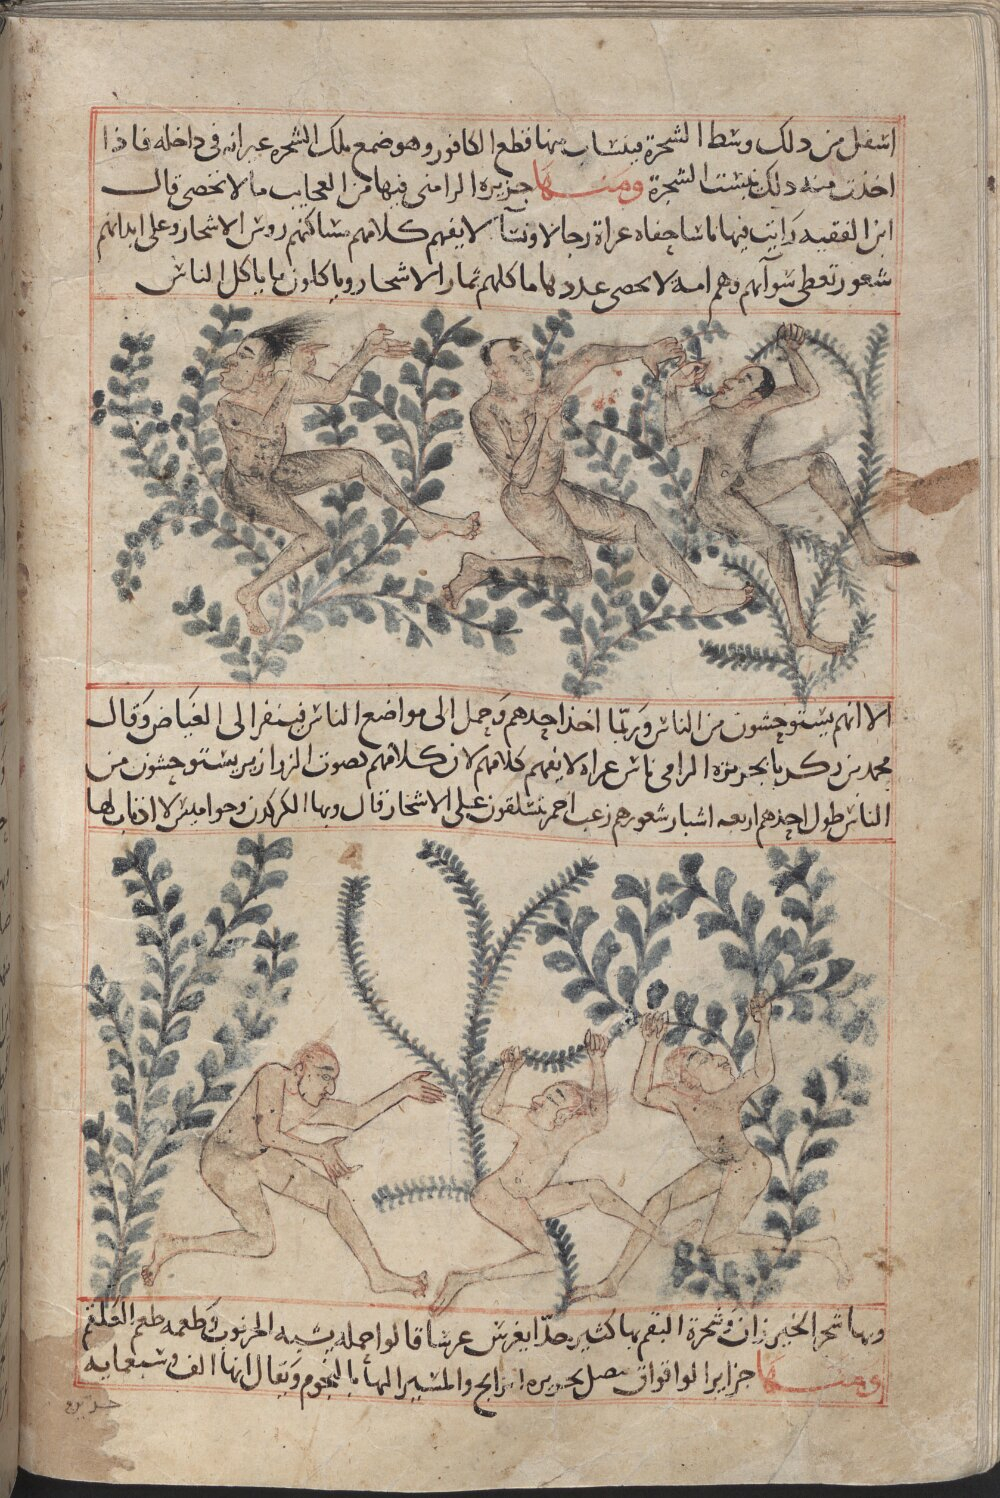 اسفل من ذلك وسط الشجرة فينساب منها قطع الكافور وهو ضمع ملك الشجره غير انه فى داخله فاذا
اخذت منه ذلك يبست الشجرة ومنها جزيره الرامنى فيها من العجايب ما لا تحصى قال
ابن الفقيه رايت فيها ناسا حفاه عراة رجالا ونسآ لا يفهم كلامهم مساكنهم روس الاشجار وعلى ابدانهم
شعور تغطى سوآتهم وهم امه لا تحصى عددها ماكلهم ثمار الاشجار وياكلون ما ياكل الناس
الا انهم يستوحشون من الناس وربما اخذ احدهم وحمل الى مواضع الناس فينفر الى الغياض وقال
محمد بن زكريا بجزيرة الرامى ناس عراه لا يفهم كلامهم لان كلامهم لصوت الزرازير يستوحشون من
الناس طول احدهم اربعه اشبار شعورهم زغب احمر يتسلقون على الاشجار قال وبها الكركدن وجواميس لا اذناب لها
وبها شجر الخيزران وشجرة البقم بها كثير جدا يغرس غرسا قالوا حمله يشبه الخرنوب وطعمه طعم العلقم
ومنها جزاير الواقواق متصل بجزيره الرانج والمسير اليها بالنجوم ويقال انها الف وسبعمايه
جزيره